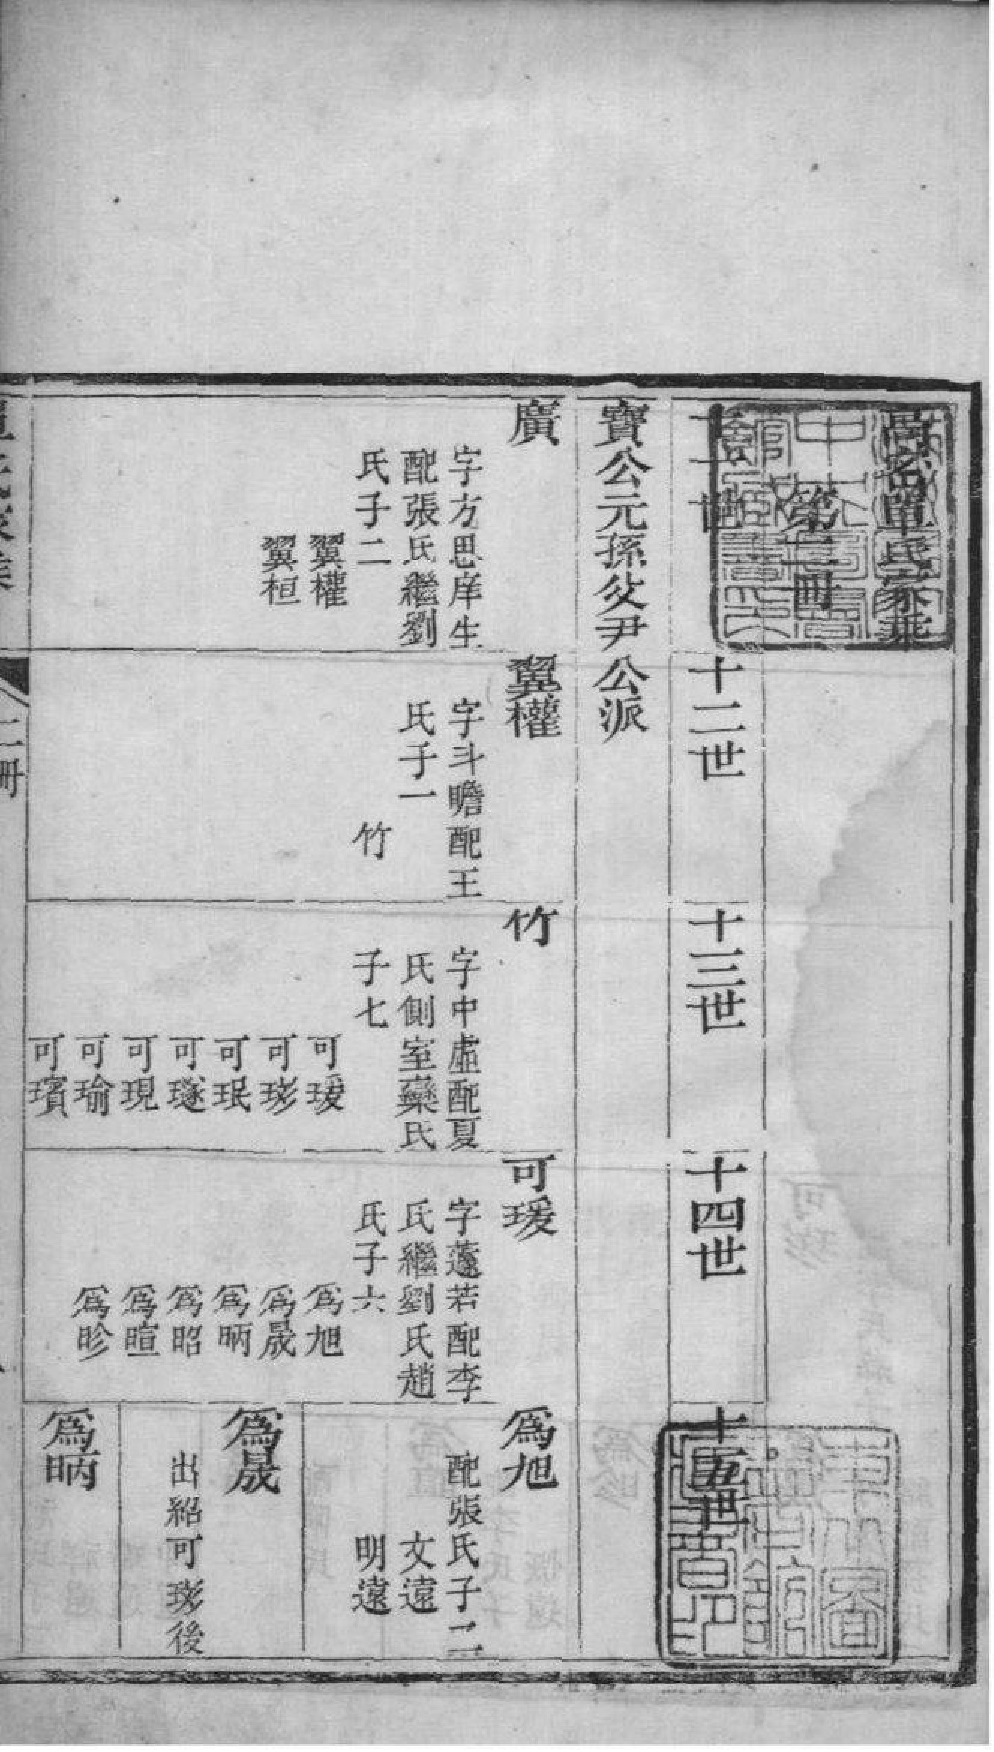 高密單氏家乘
第二冊
十一世
十二世
十三世
十四世
十五世
寶公元孫父尹公派
廣
字方思庠生
配張氏繼劉
氏子二
翼權
翼桓
翼權
字斗瞻配王
氏子一
竹
竹
字中虛配夏
氏側室欒氏
子七
可瑗
可珳
可珉
可璲
可現
可瑜
可璸
可瑗
字蘧若配李
氏繼劉氏趙
氏子六
爲旭
爲晟
爲昞
爲昭
爲暄
爲昣
爲旭
配張氏子二
文遠
明遠
爲晟
出紹可珳後
爲昞
單氏家乘
二冊